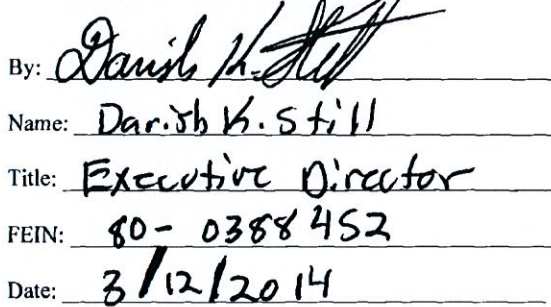 By: Darish K. Still
Name: Darish K. Still
Title: Executive Director
FEIN: 80-0388452
Date: 3/12/2014